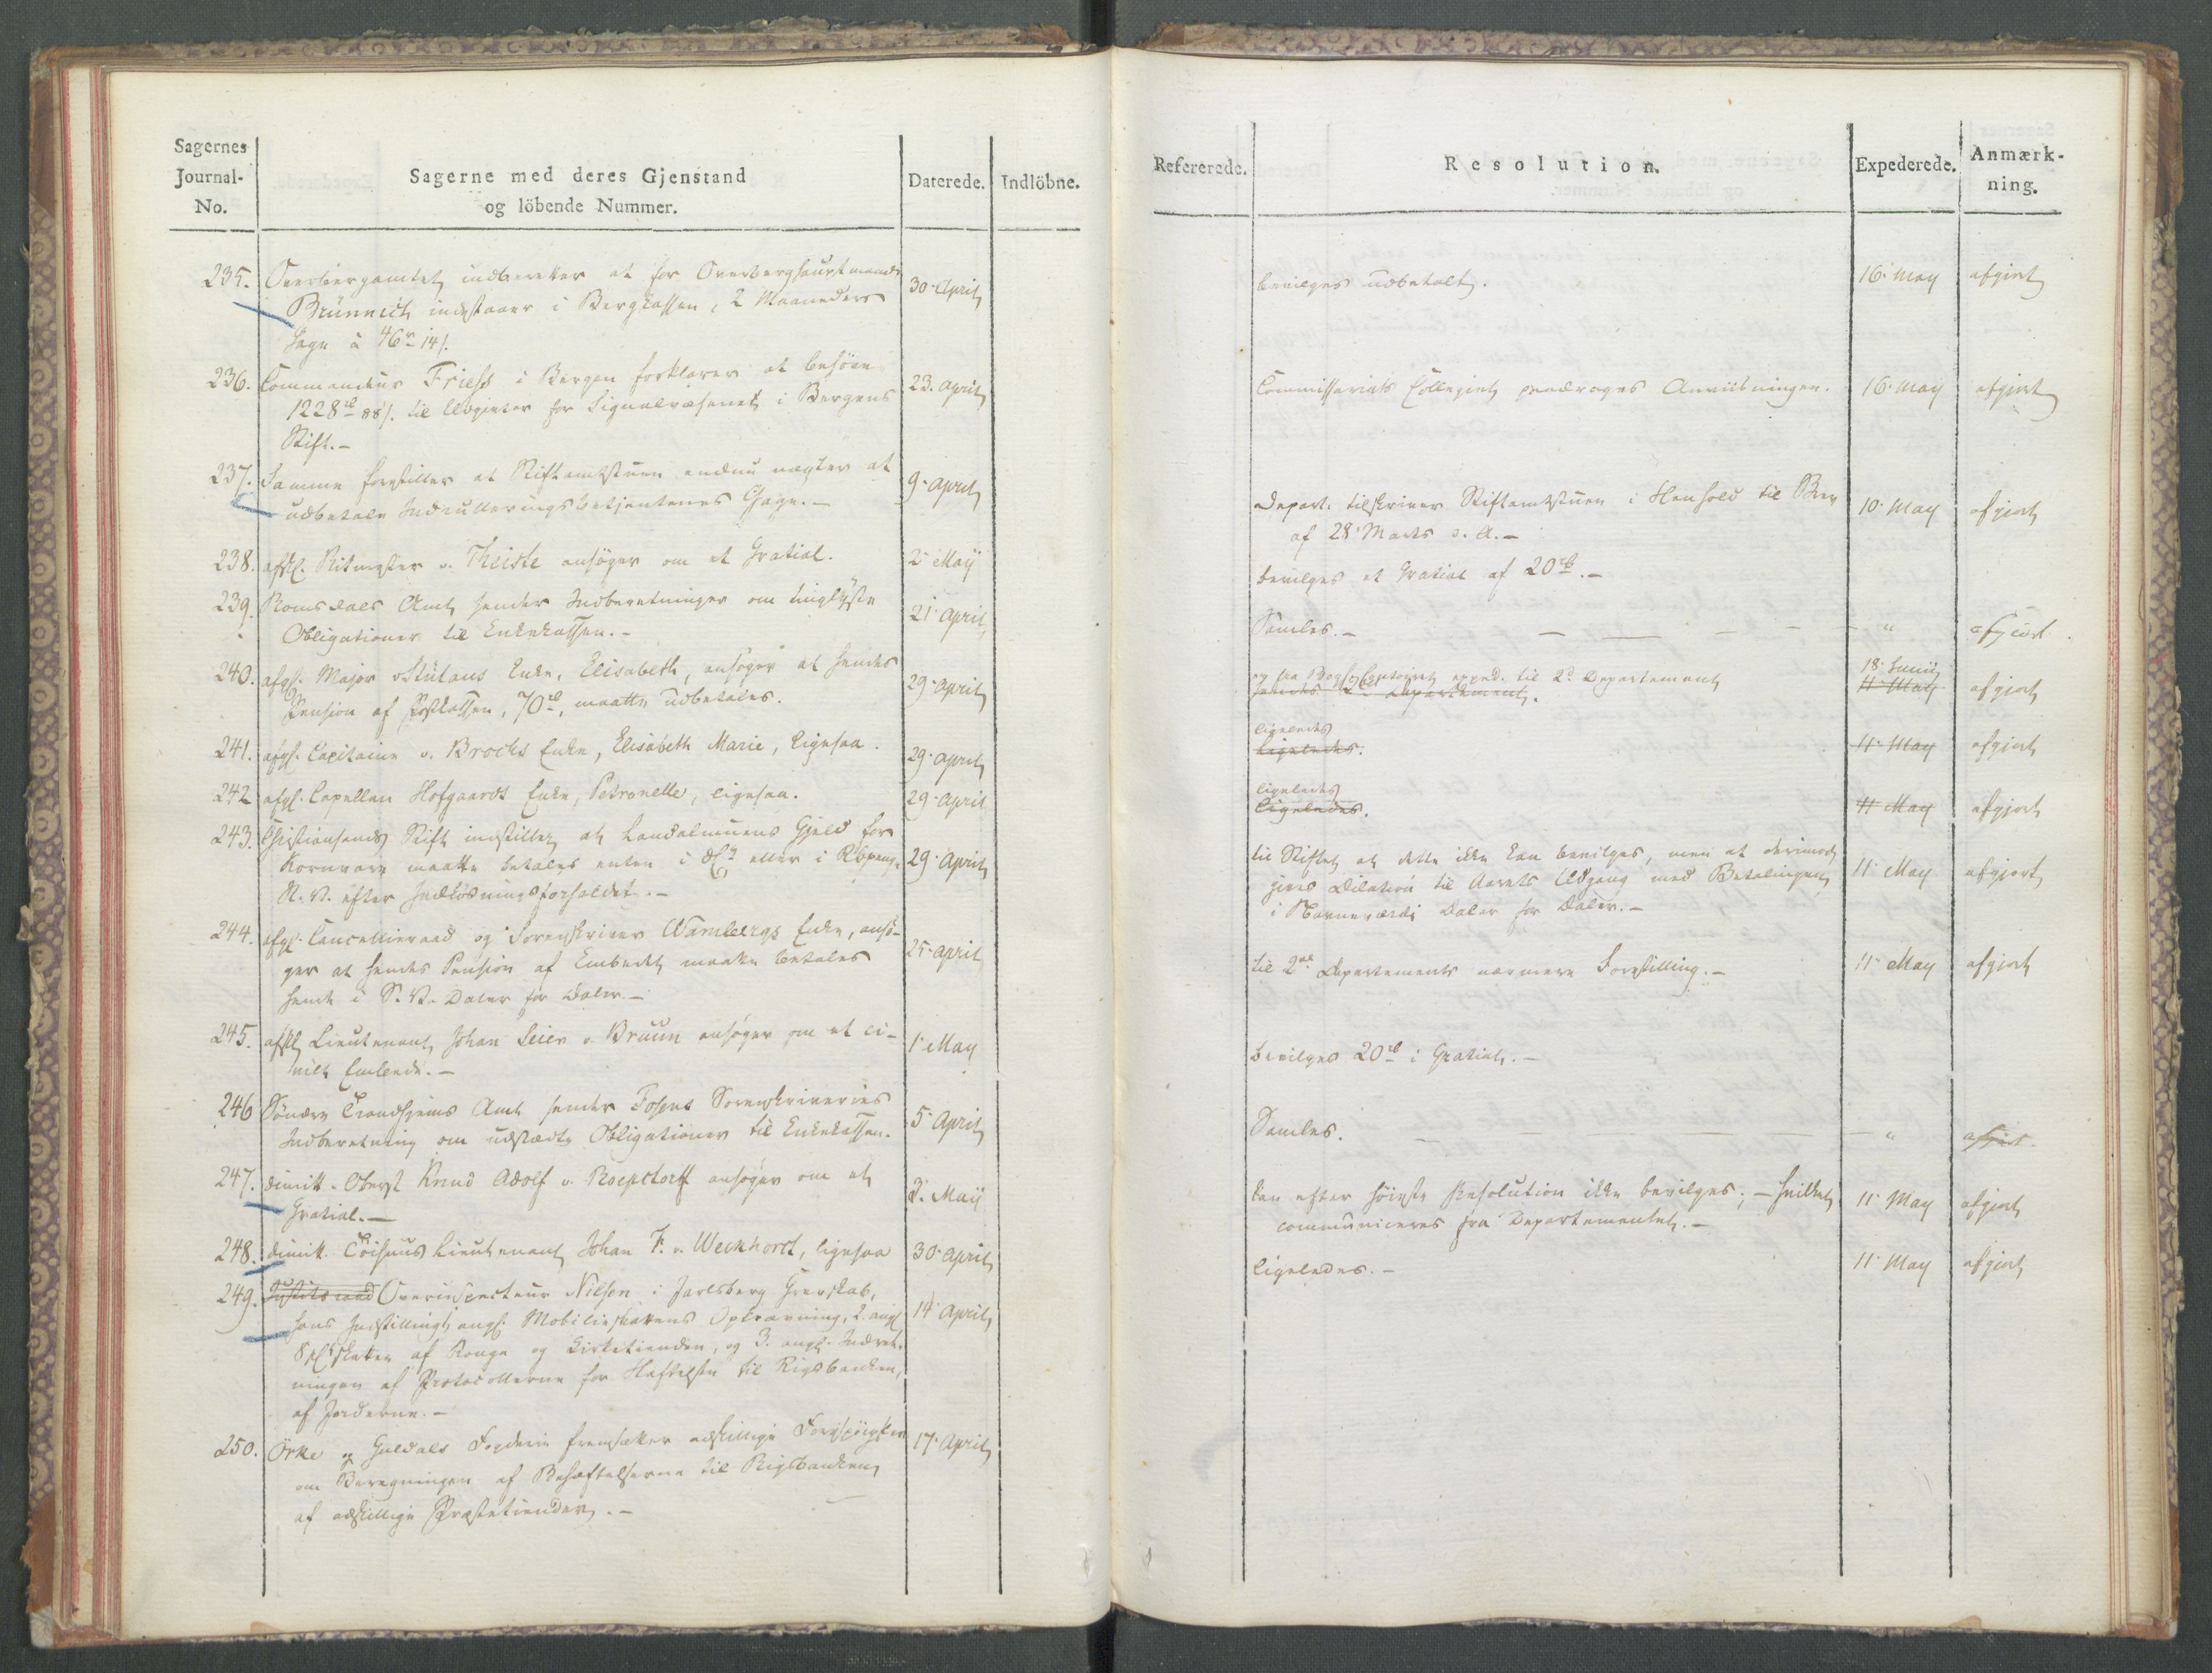 Sagernes
Journal-
No.
Sagerne med deres Gjenstand
og löbende Nummer.
Daterede.
Indlöbne.
235. Overbergamtet indberetter at for Overberghauptmand
Brünnich indestaaer i Bergkassen, 2 Maaneders
Gage à 46 r 14 s.
30. April
236. Commandeur Friess i Bergen forklarer at behöve
1228 rd 88 s. til Udgivter for Signalvæsenet i Bergens
Stift.-
23. April
237. Samme forestiller at Stiftamtstuen endnu nægter at
udbetale Indrulleringsbetjentenes Gage.-
9. April
238. afsk. Ritmester v. Theiste ansöger om et Gratial.
2. Maÿ
239. Romsdals Amt sender Indberetninger om tinglÿste
Obligationer til Enkekassen.-
21. April
240. afg. Major Enke, Elisabeth, ansöger at hendes
Pension af Postkassen, 70 rd, maatte udbetales.
29. April
241. afg. Capitaine v. Brocks Enke, Elisabeth Marie, ligesaa.
29. April
242 afg. Capellan Hofgaards Enke, Petronelle, ligesaa.
29. April
243. Christiansands Stift indstiller at Landalmuens Gjeld for
Kornvare maatte betales enten i eller i Rbpenge
N. V. efter Indlösningsforholdet.-
29. April
244. afg. Cancellieraad og Sorenskriver Wambergs Enke, ansö-
ger at hendes Pension af Embedet maatte betales
hende i S. V. Daler for Daler.-
25. April
245. afsk. Lieutenant Johan Leier v. Bruun ansöger om et ci-
vilt Embede.-
1. May
246 Söndre Trondhjems Amt sender Fosens Sorenskriveries
Indberetning om udstædte Obligationer til Enkekassen.
5. April
247. dimitt. Oberst Knud Adolf v. Roepstorff ansöger om et
Gratial.-
3. Maÿ
248. dimitt. Lieutenant Johan F. v. Weckhorst, ligesaa
30. April
249. Justitsraad Overinspecteur Nilsen i Jarlsberg Grevskab,
hans Indstilling ang. Mobilieskattens Opkrævning, 2. ang.
skatten af Konge og Kirketienden, og 3. ang. Indret-
ningen af Protocollerne for Hæftelsen til Rigsbanken,
af Jorderne.-
14. April
250. Örke og Guldals Fogderie fremsætter adskillige Forespörgsler
om Beregningen af Behæftelserne til Rigsbanken
af adskillige Præstetiender.-
17. April
Refererede.
Resolution.
Expederede.
Anmærk-
ning.
bevilges udbetalt.
16. May
afgjort
Commissariats Collegiet paadrages Anviisningen.
16. May
afgjort
Depart. tilskriver Stiftamtstuen i Henhold til Brev
af 28. Marts d. A.-
10. May
afgjort
bevilges et Gratial af 20 rd.-
Samles.-
"
afgjort.
expd. til 2d. Departement
Departement.
18. Junii
11. May
afgjort
ligeledes
Ligeledes.
11. May
afgjort
ligeledes
Ligeledes.
11 May
afgjort
til Stiftet at dette ikke kan bevilges, men at derimod
gives Dilation til Aarets Udgang med Betalingen
i Navneværdi Daler for Daler.-
11. May
afgjort
til 2det Departements nærmere Forestilling.-
11. May
afgjort
bevilges 20 rd i Gratial.-
Samles.
"
afgjort.
kan efter höieste Resolution ikke bevilges; - hvilket
communiceres fra Departementet.-
11. May
afgjort
ligeledes.-
11. May
afgjort